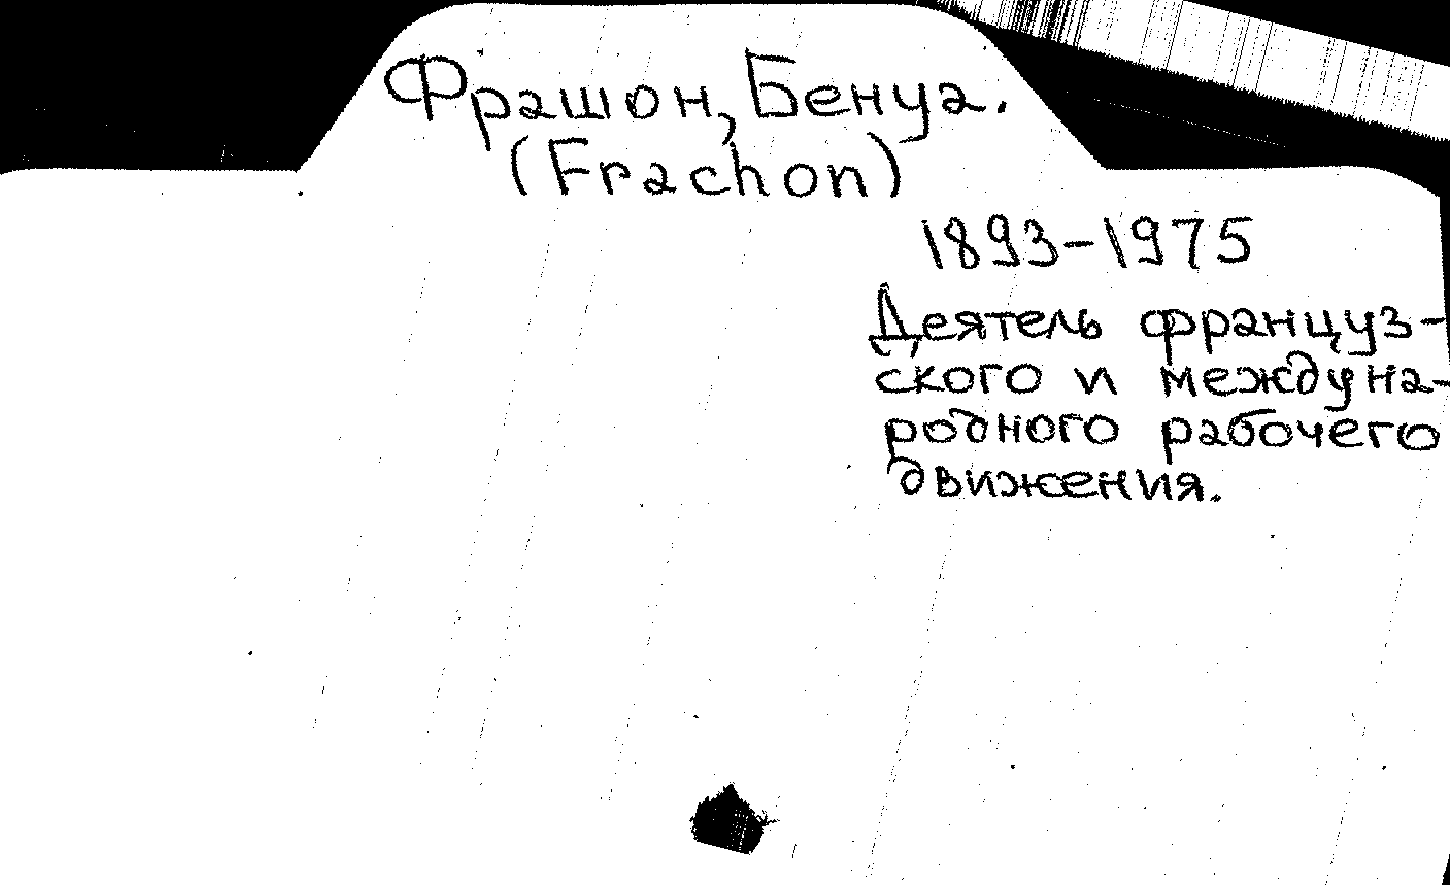 Фрашон, Бенуа.
(Frachon)
1893-1975
Деятель француз-
ского и междуна-
родного рабочего
движения.